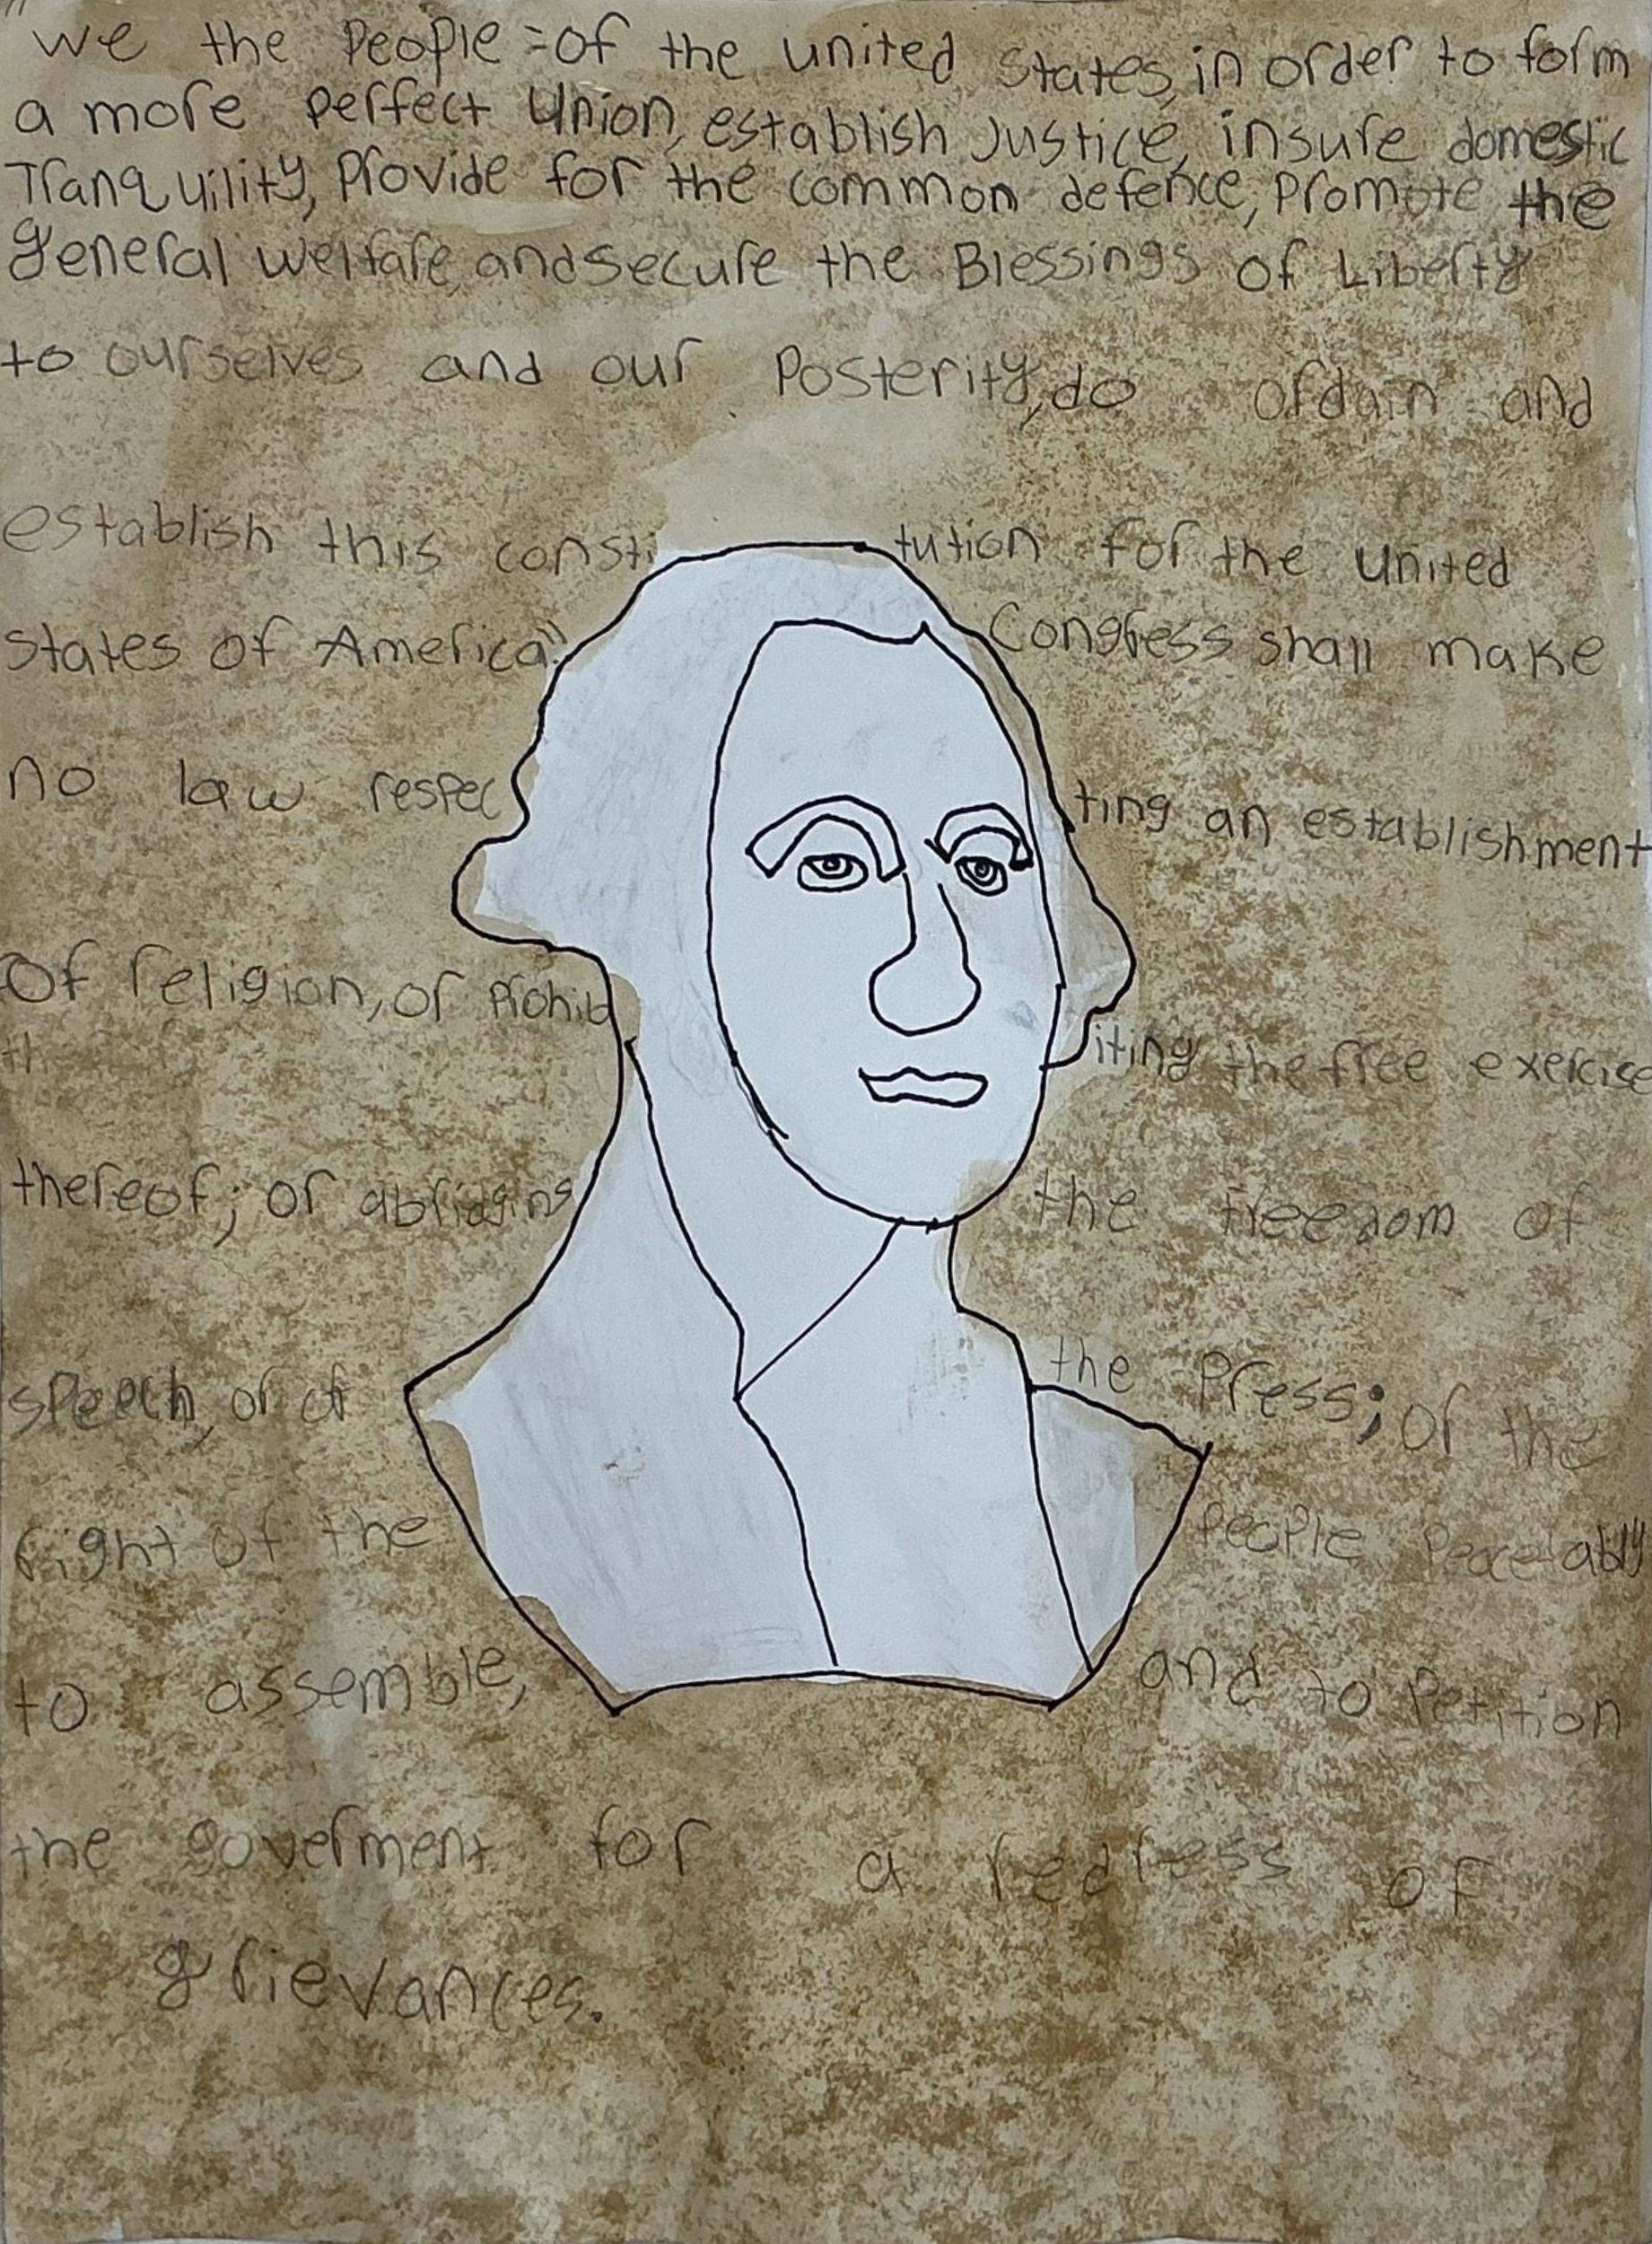 "
we the People=of the united States, in order to form
a more perfect Union, establish Justice, insure domestic
Tranquility, Provide for the common defence, Promote the
general welfare, and secure the Blessings of Liberty
to ourselves and our Posterity, do ordain and
establish this consti tution for the united
States of America." Congress shall make
no law respec ting an establishment
Of religion, or Prohib
th iting the free exercise
thereof; or abridging the freedom of
speech, or of the Press; or the
right of the People Peaceably
to assemble, and to Petition
the goverment for a redress of
grievances.